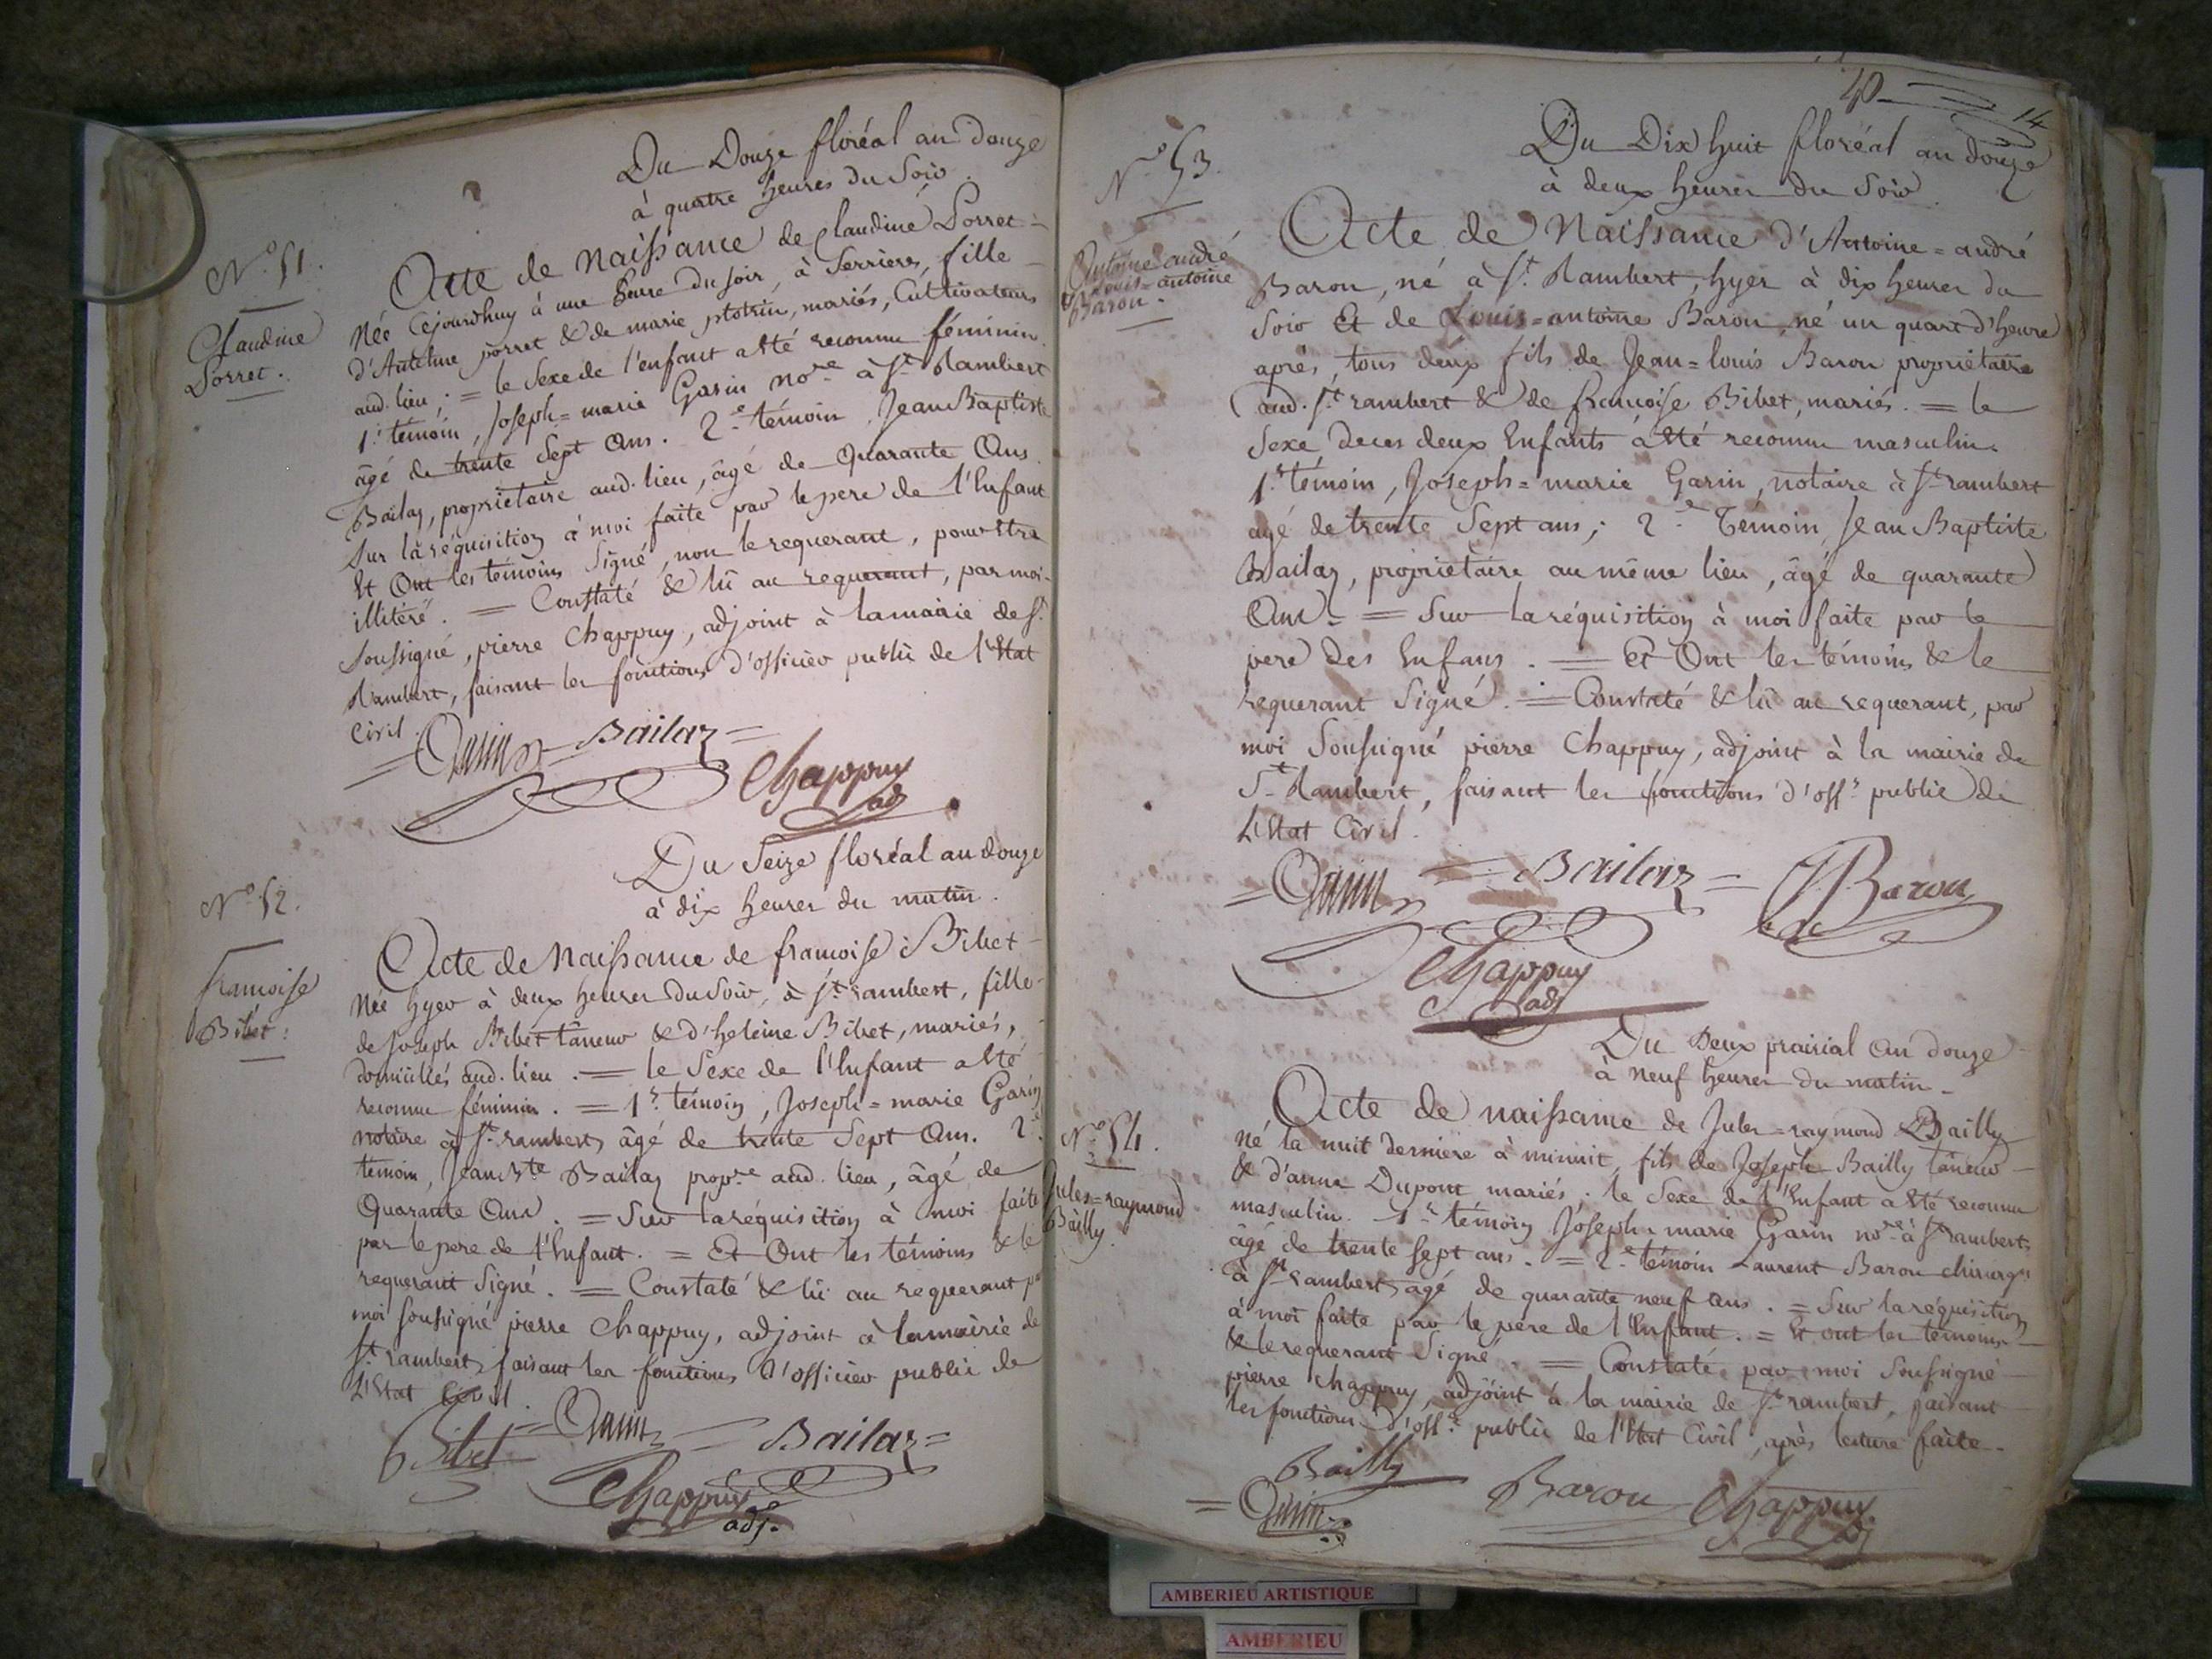 Du Douze floréal an douze
à quatre heures du Soir.
N.º 51.
Claudine
Porret.
Acte de Naissance de Claudine Porret
Née Cejourdhuy à une heure du soir, à Serrieres, fille
d'Antelme porret & de marie, mariés, Cultivateurs
aud. lieu; = le Sexe de l'enfant a Eté reconnu féminin.
1.r témoin, Joseph=marie Garin no.re à S.t Rambert
âgé de trente Sept Ans. 2.e témoin Jean Baptiste
Bailaz, propriétaire aud. lieu, âgé de Quarante Ans
Sur la réquisition à moi faite par le pere de l'Enfant
Et Ont les témoins Signé, non le requerant, pour Etre
illitéré. = Constaté & lû au requerant, par moi
Soussigné, pierre Chappuy, adjoint à la mairie de S.t
Rambert, faisant les fonctions d'officier public de l'Etat
Civil.
= Garin = Bailaz =
Chappuy
adj
Du Seize floréal an douze
à dix heures du matin.
N.º 52.
francoise
Bibet:
Acte de Naissance de francoise Bibet
Née hyer à deux heures du Soir, à S.t rambert, fille
de Joseph Bibet tâneur & d'heleine Bibet, mariés,
domiciliés aud. lieu. = le Sexe de l'Enfant a Eté
reconnu féminin. = 1.r témoin, Joseph=marie Garin
notaire à S.t rambert, âgé de trente Sept Ans. 2.e
témoin, Jean B.te Bailaz prop.re aud. lieu, âgé de
Quarante Ans. = Sur la réquisition à moi faite
par le pere de l'Enfant. = Et Ont les témoins & le
requerant Signé. = Constaté & lû au requerant
moi soussigné pierre Chappuy, adjoint à la mairie de
S.t rambert, faisant les fonctions d'officier public de
L'Etat Civil.
Bibet = Garin = Bailaz =
Chappuy
adj.
40
14
N.º 53.
Du Dix huit floréal an douze
à deux heures du Soir.
Antoine=andré
& Louis=antoine
Baron.
Acte de Naissance d'Antoine=andré
Baron, né à S.t Rambert, hyer à dix heures du
Soir Et de Louis=antoine Baron, né un quart d'heure
après, tous deux fils de Jean=louis Baron propriétaire
aud. S.t rambert & de francoise Bibet, mariés. = le
Sexe de ces deux Enfants a Eté reconnu masculin.
1.r témoin, Joseph=marie Garin, notaire à S.t rambert
agé de trente Sept ans; 2.e Témoin, Jean Baptiste
Bailaz, propriétaire au même lieu, âgé de quarante
Ans. = Sur la réquisition à moi faite par le
pere des Enfans. = Et Ont les témoins & le
requerant Signé. = Constaté & lû au requerant, par
moi Soussigné pierre Chappuy, adjoint à la mairie de
S.t Rambert, faisant les fonctions d'off.r public de
L'Etat Civil.
= Garin = Bailaz = Baron
Chappuy
adj
Du Deux prairial an douze
à neuf heures du matin.
N.º 54.
Jules=raymond
Bailly.
Acte de naissance de Jules=raymond Bailly
né la nuit derniere à minuit, fils de Joseph Bailly tâneur
& d'anne Dupont mariés; le Sexe de l'Enfant a Eté reconnu
masculin. 1.r témoin Joseph marie Garin no.re à S.t rambert,
âgé de trente sept ans. = 2.e témoin Laurent Baron chirurg.n
à S.t rambert, agé de quarante neuf ans. = Sur la réquisition
à moi faite par le pere de l'Enfant. = Et ont les temoins
& le requerant Signé. = Constaté par moi Soussigné
pierre chappuy, adjoint à la mairie de S.t rambert, faisant
les fonctions d'off.r public de l'Etat Civil, après lecture faite.
Bailly
= Garin Baron Chappuy
adj
AMBERIEU ARTISTIQUE
AMBERIEU